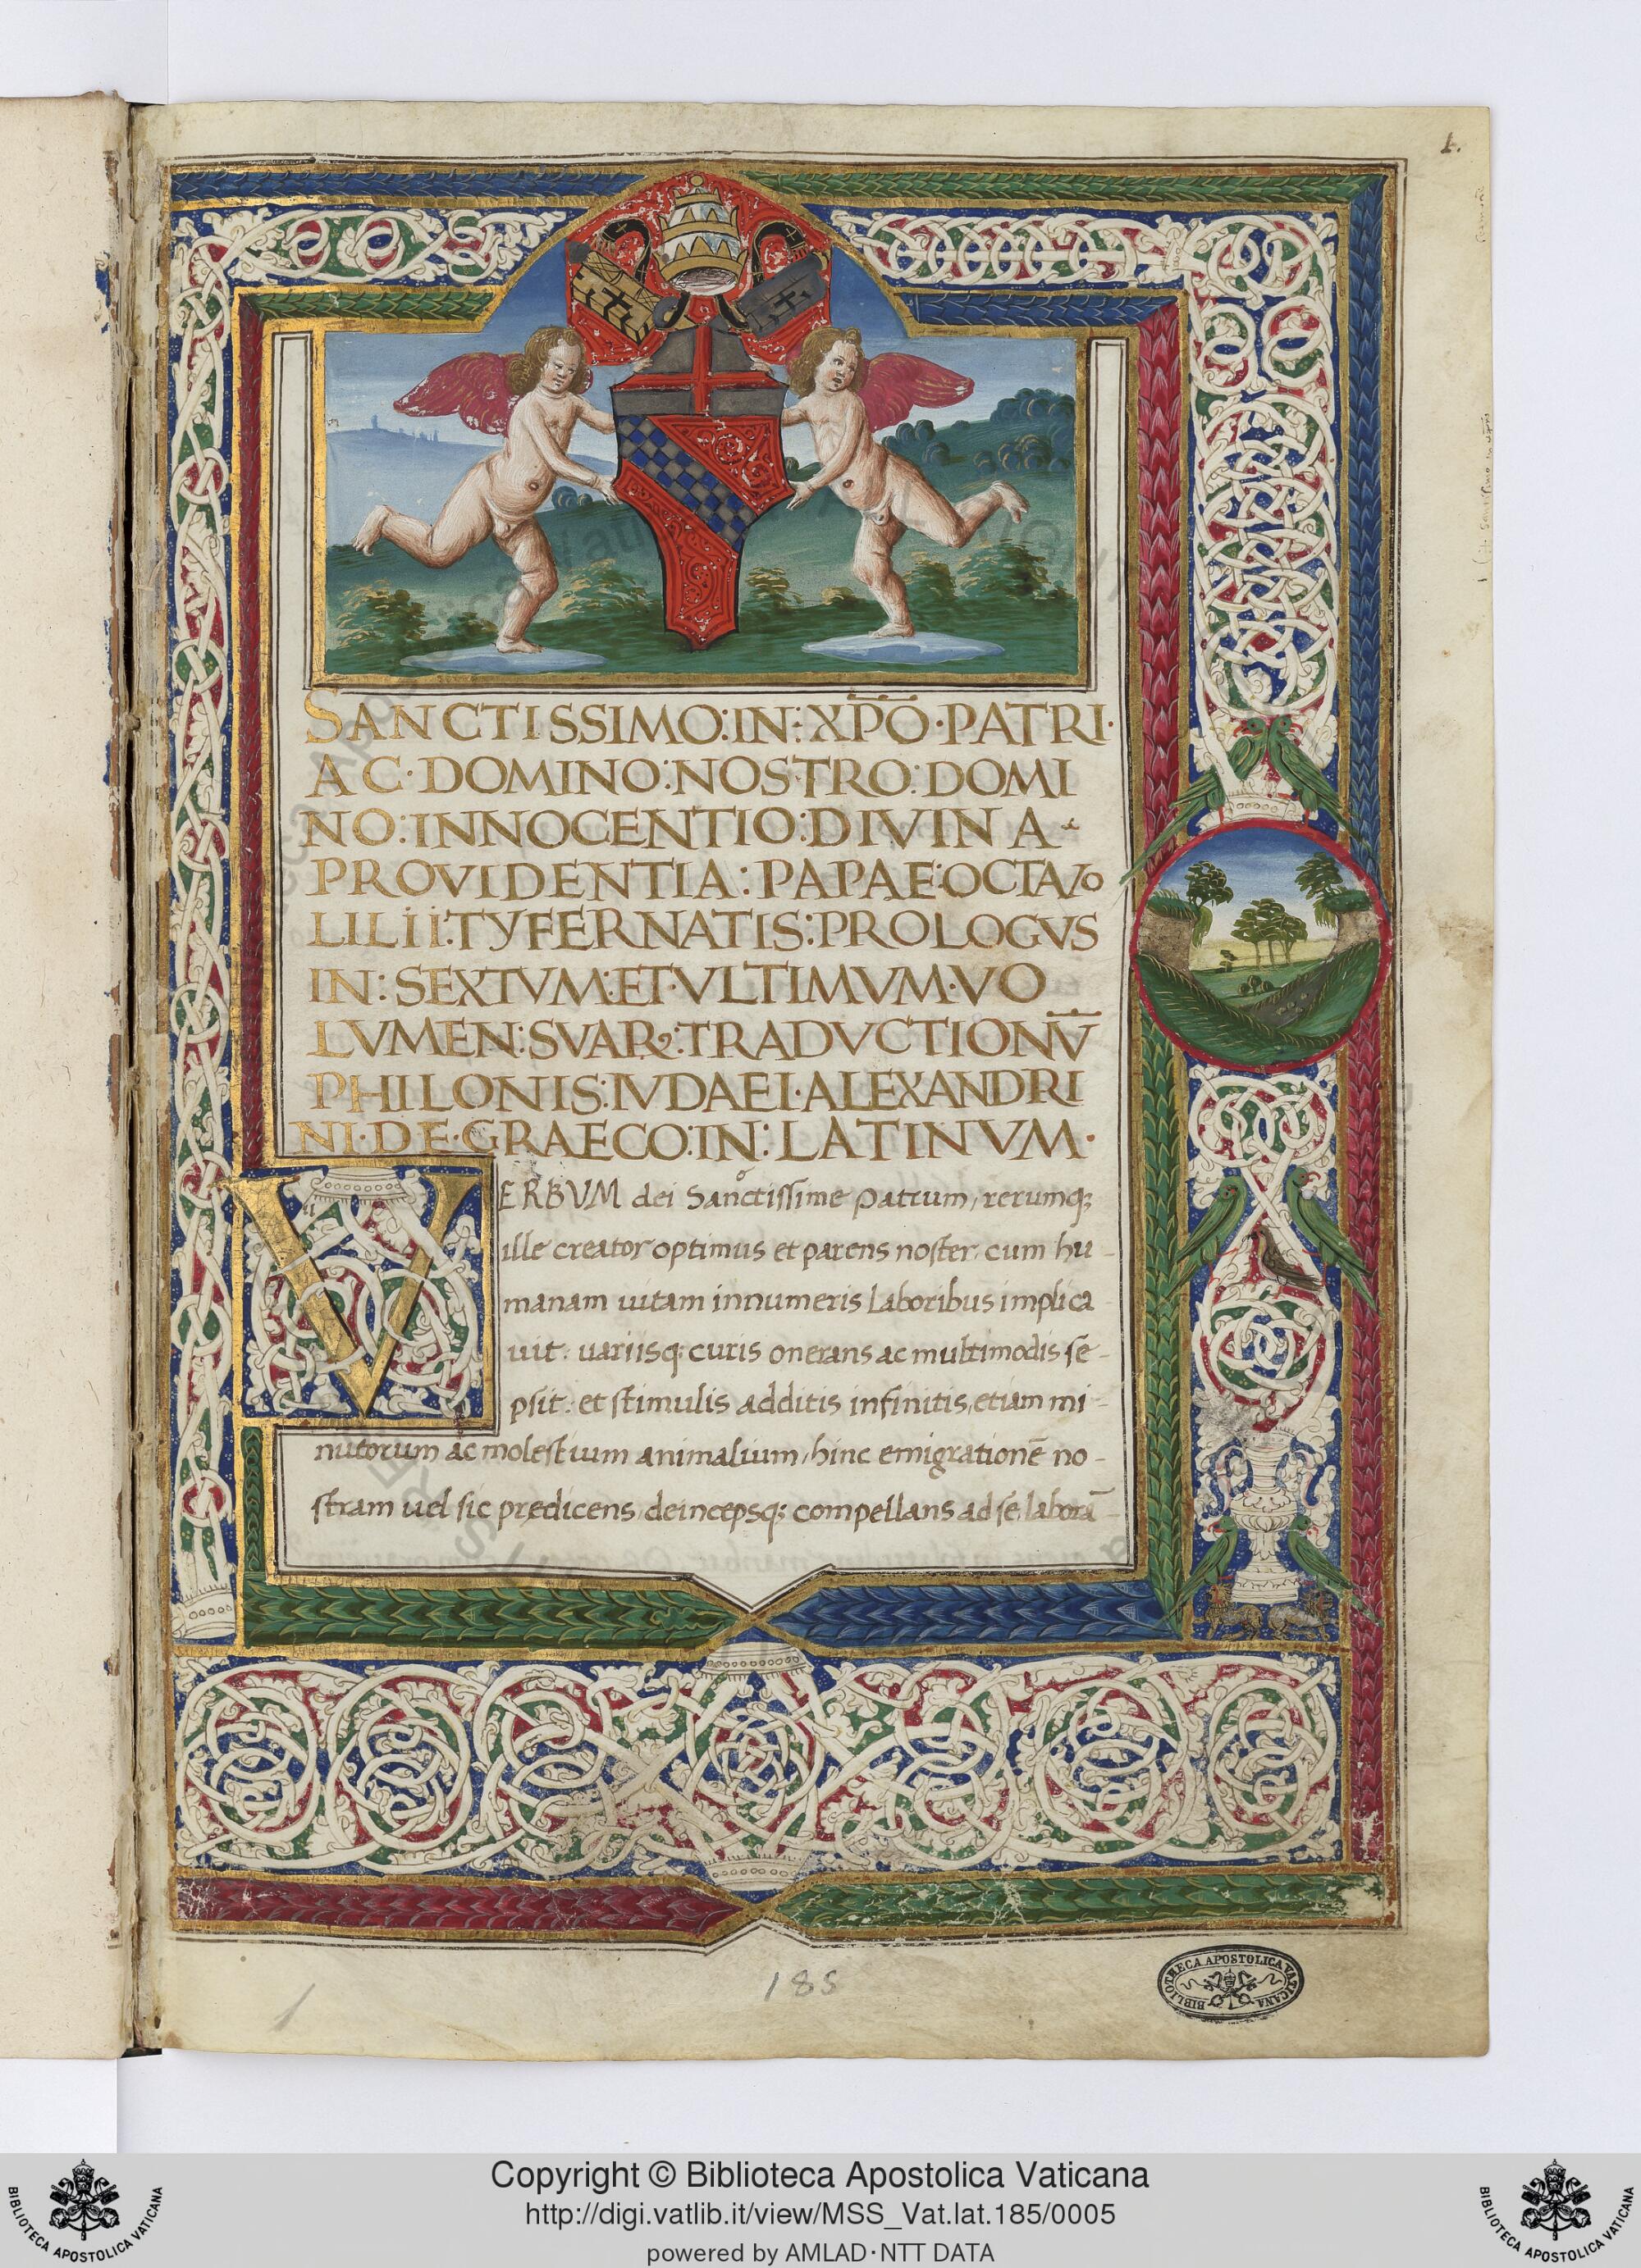 1.
SANCTISSIMO:IN:XP̄Ō·PATRI·
AC·DOMINO:NOSTRO:DOMI
NO:INNOCENTIO:DIVINA·
PROVIDENTIA:PAPAE:OCTAVO
LILII:TYFERNATIS:PROLOGVS
IN:SEXTVM:ET·VLTIMVM·VO
LVMEN:SVARꝜ:TRADVCTIONV̄
PHILONIS:IVDAEI·ALEXANDRI
NI·DE·GRAECO:IN:LATINVM·
VERBVM dei Sanctissime patrum, rerumq;
ille creator optimus et parens noster, cum hu-
manam uitam innumeris laboribus implica
uit: uariisq; curis onerans ac multimodis se-
psit: et stimulis additis infinitis, etiam mi-
nutorum ac molestium animalium, hinc emigrationē no-
stram uel sic prędicens, deincepsq; compellans ad se, laborā-
185
1
BIBLIOTHECA APOSTOLICA VATICANA
Copyright © Biblioteca Apostolica Vaticana
http://digi.vatlib.it/view/MSS_Vat.lat.185/0005
powered by AMLAD·NTT DATA
BIBLIOTECA APOSTOLICA VATICANA
BIBLIOTECA APOSTOLICA VATICANA